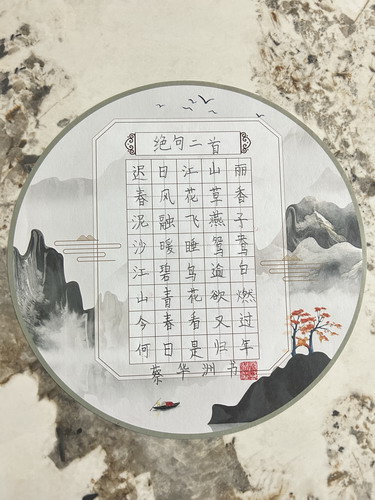 绝句二首
迟日江山丽
春风花草香
泥融飞燕子
沙暖睡鸳鸯
江碧鸟逾白
山青花欲燃
今春看又过
何日是归年
蔡华洲书